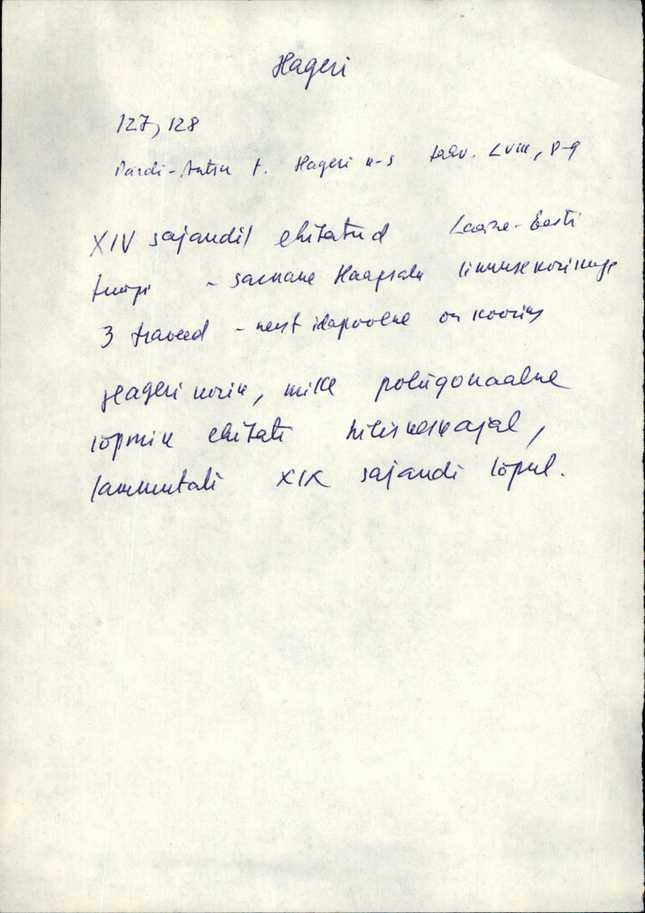 Hageri
127, 128
t. Hageri LVIII, 8-9
XIV sajandil ehitatud Lääne-Eesti
tüüpi - sarnane Haapsalu linnusekirikuga
3 traveed - neist idapoolne on kooriks
Hageri kirik, mille polügonaalne
lõpmik ehitati hiliskeskajal,
lammutati XIX sajandi lõpul.